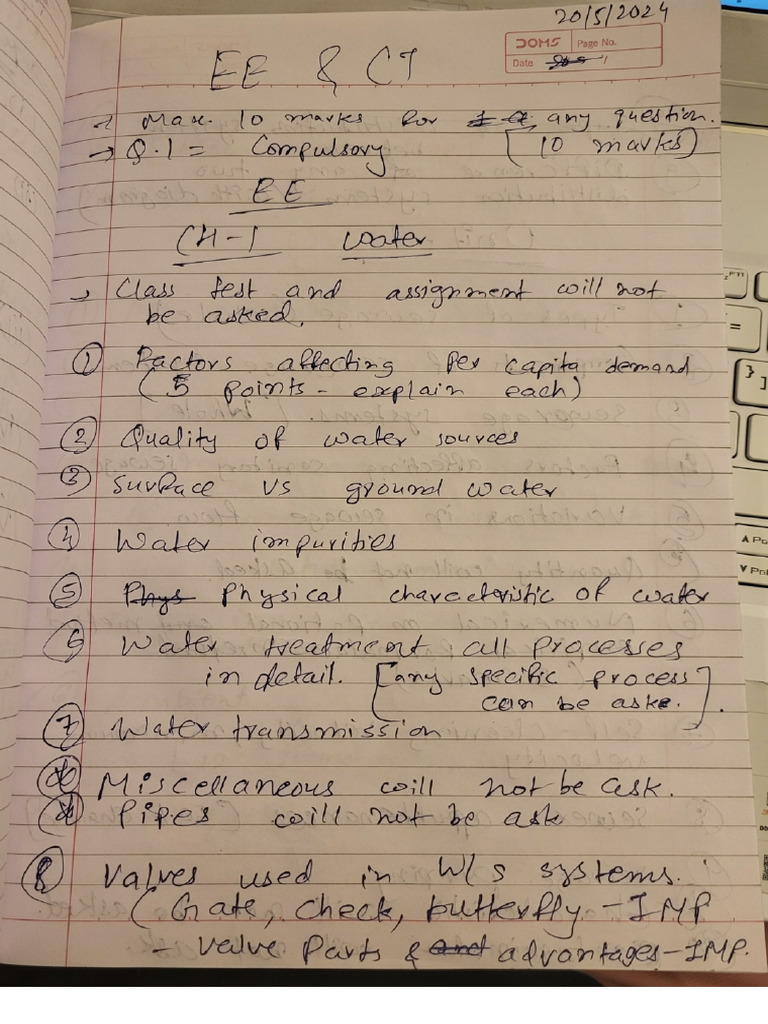 20/5/2024
DOMS Page No.
Date
EE & CT
→ Max. 10 marks for any question.
→ Q.1 = Compulsory [10 marks]
EE
CH-1 water
→ Class test and assignment will not
be asked.
① Factors affecting per capita demand
(5 points - explain each)
② Quality of water sources
③ Surface vs ground water
④ Water impurities
⑤ Phys Physical charecteristic of water
⑥ Water treatment all processes
in detail. [any specific process
can be aske.].
⑦ Water transmission
Miscellaneous will not be ask.
Pipes will not be ask
⑧ Valves used in W/s systems.
(Gate, check, butterfly - IMP
- valve parts & and advantages - IMP.